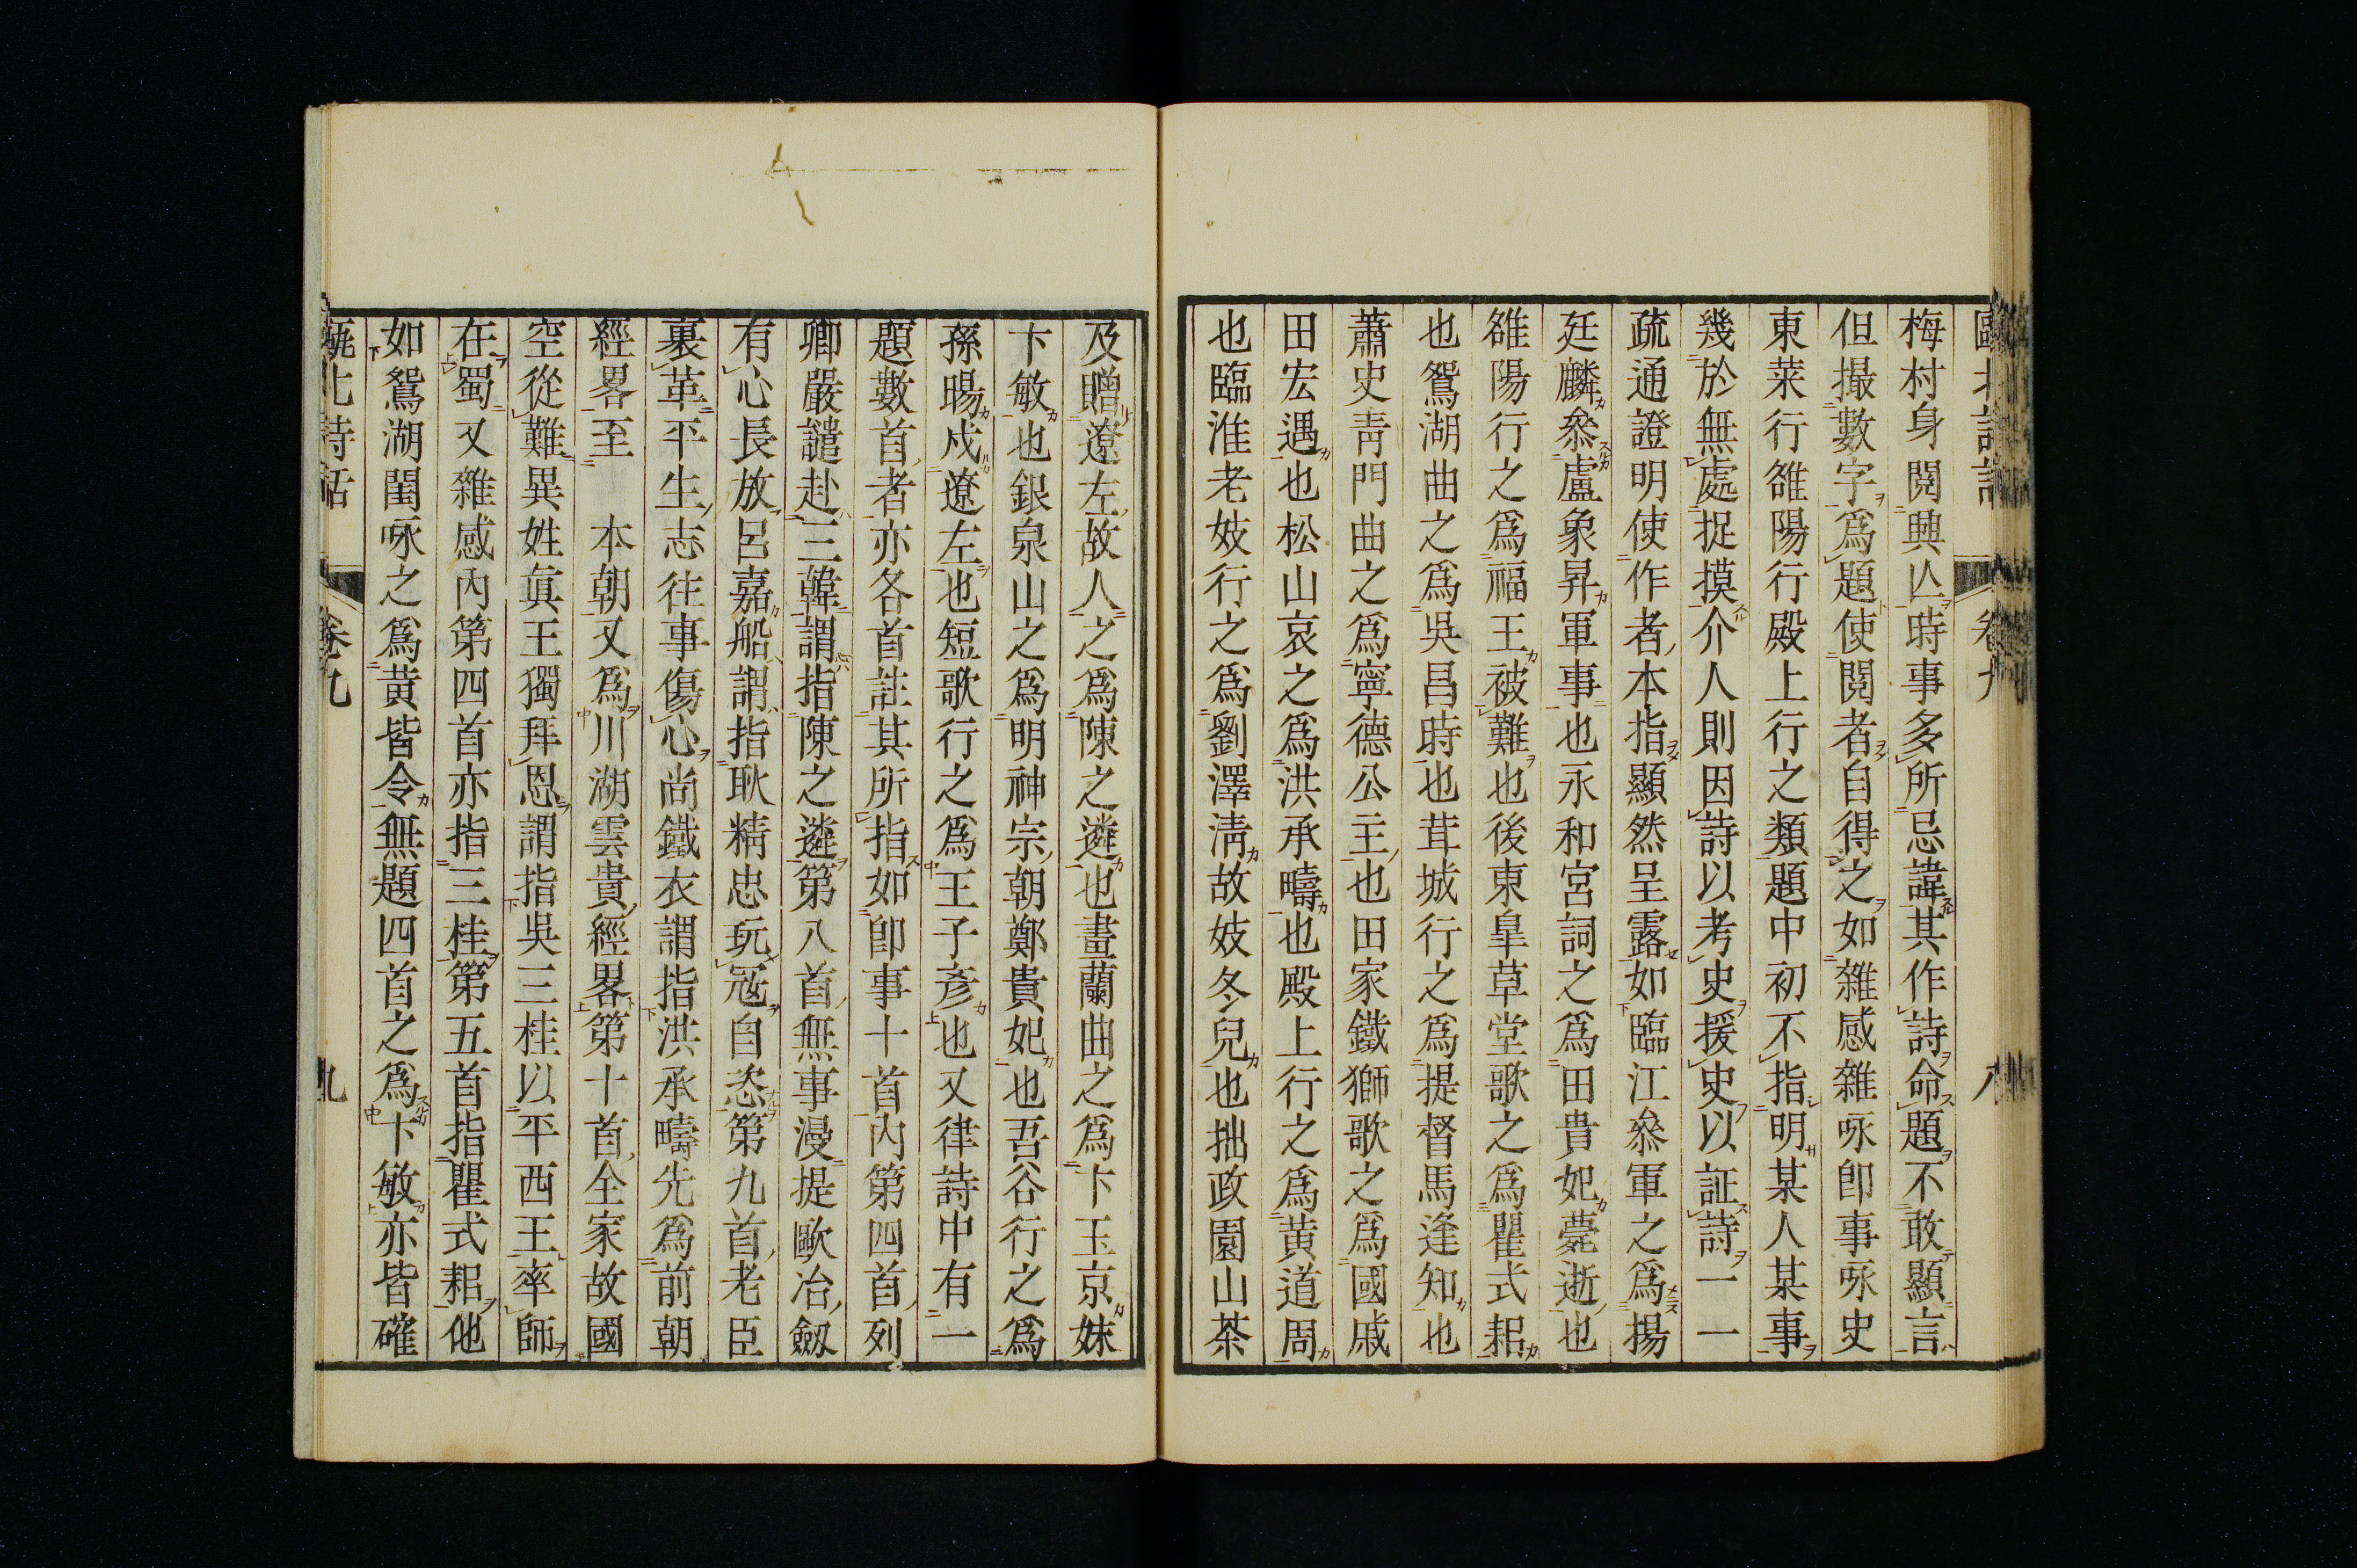 梅村身閱興亾時事多所忌諱其作詩命題不敢顯言
但撮數字爲題使閱者自得之如雜感雜咏卽事咏史
東萊行雒陽行殿上行之類題中初不指明某人某事
幾於無處捉摸介人則因詩以考史援史以証詩一一
疏通證明使作者本指顯然呈露如臨江叅軍之爲揚
廷麟叅盧象昇軍事也永和宮詞之爲田貴妃薨逝也
雒陽行之爲福王被難也後東皐草堂歌之爲瞿式耜
也鴛湖曲之爲吳昌時也茸城行之爲提督馬逢知也
蕭史靑門曲之爲寧德公主也田家鐵獅歌之爲國戚
田宏遇也松山哀之爲洪承疇也殿上行之爲黄道周
也臨淮老妓行之爲劉澤淸故妓冬兒也拙政園山茶
及贈遼左故人之爲陳之遴也畫蘭曲之爲卞玉京妹
卞敏也銀泉山之爲明神宗朝鄭貴妃也吾谷行之爲
孫暘戍遼左也短歌行之爲王子彥也又律詩中有一
題數首者亦各首註其所指如卽事十首內第四首列
卿嚴譴赴三韓謂指陳之遴第八首無事漫提歐冶劔
有心長放呂嘉船謂指耿精忠玩寇自恣第九首老臣
裹革平生志往事傷心尚鐵衣謂指洪承疇先爲前朝
經畧至 本朝又爲川湖雲貴經畧第十首全家故國
空從難異姓眞王獨拜恩謂指吳三桂以平西王率師
在蜀又雜感內第四首亦指三桂第五首指瞿式耜他
如鴛湖閨咏之爲黄皆令無題四首之爲卞敏亦皆確
甌北詩話 卷九 九